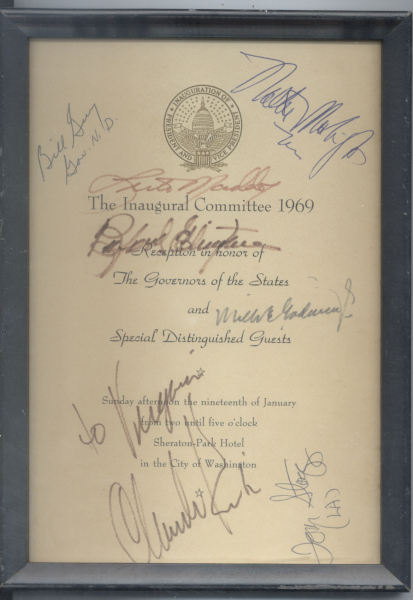 INAUGURATION OF
PRESIDENT AND VICE PRESIDENT
Bill Guy
Gov. N.D.
The Inaugural Committee 1969
Reception in honor of
The Governors of the States
and
Mills E. Godwin, Jr.
Special Distinguished Guests
to Virginia
Sunday afternoon the nineteenth of January
from two until five o'clock
Sheraton-Park Hotel
in the City of Washington
Claude Kirk